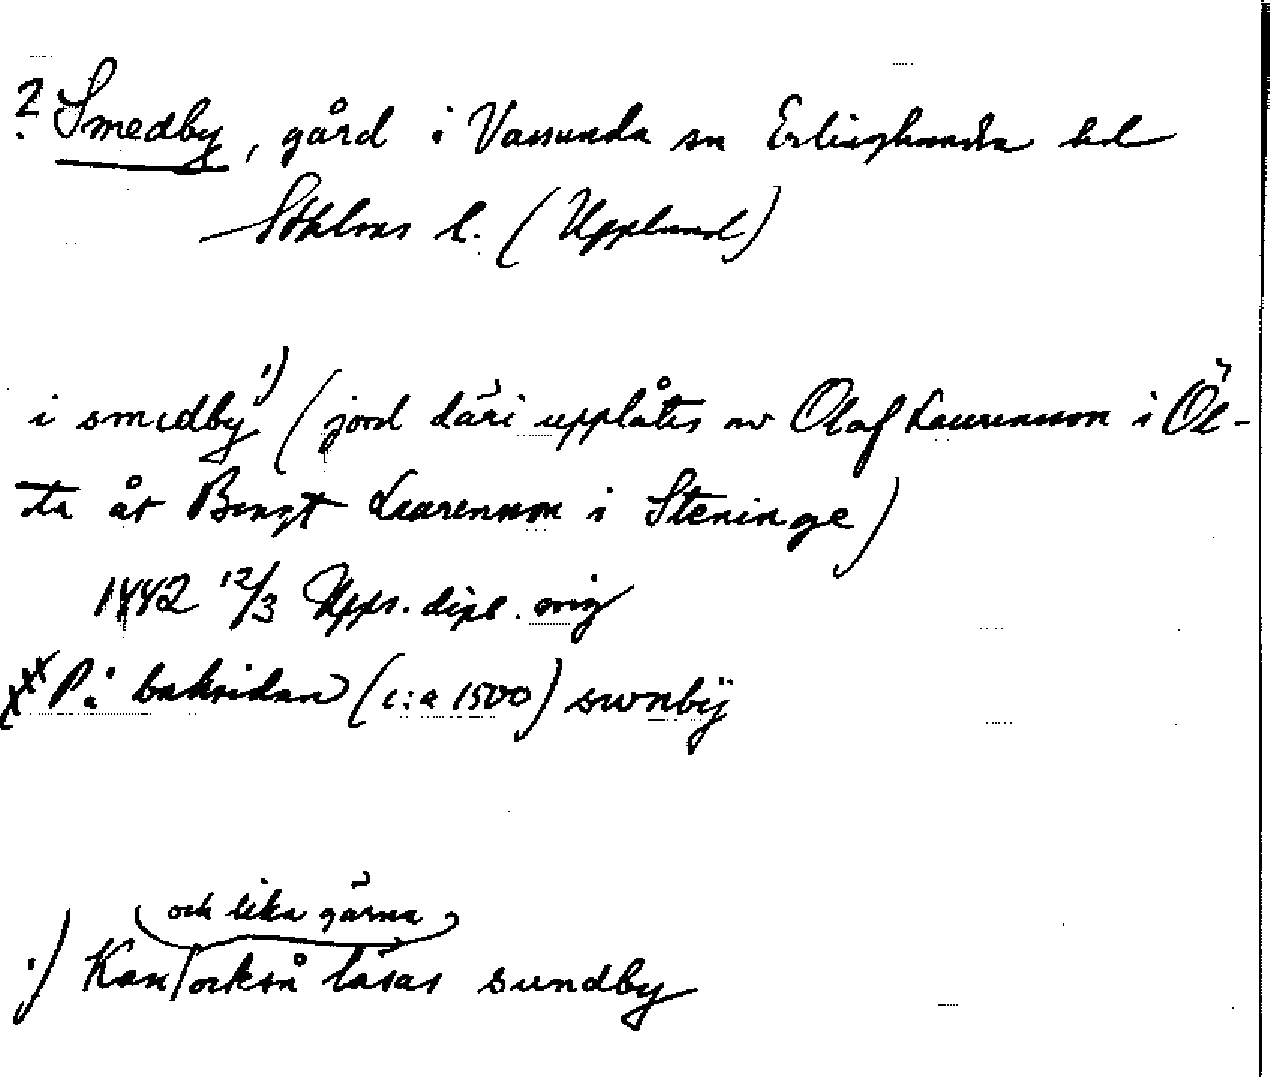 ? Smedby, gård i Vassunda sn Erlinghundra hd
Sthlms l. (Uppland)
i smedby ¹) (jord däri upplåtes av Olaf Laurensson i Öl-
sta åt Bengt Laurensson i Steninge)
1442 12/3 Upps. dipl. orig
xx På baksidan (c:a 1500) swnbÿ
och lika gärna
¹) Kan också läsas sundby